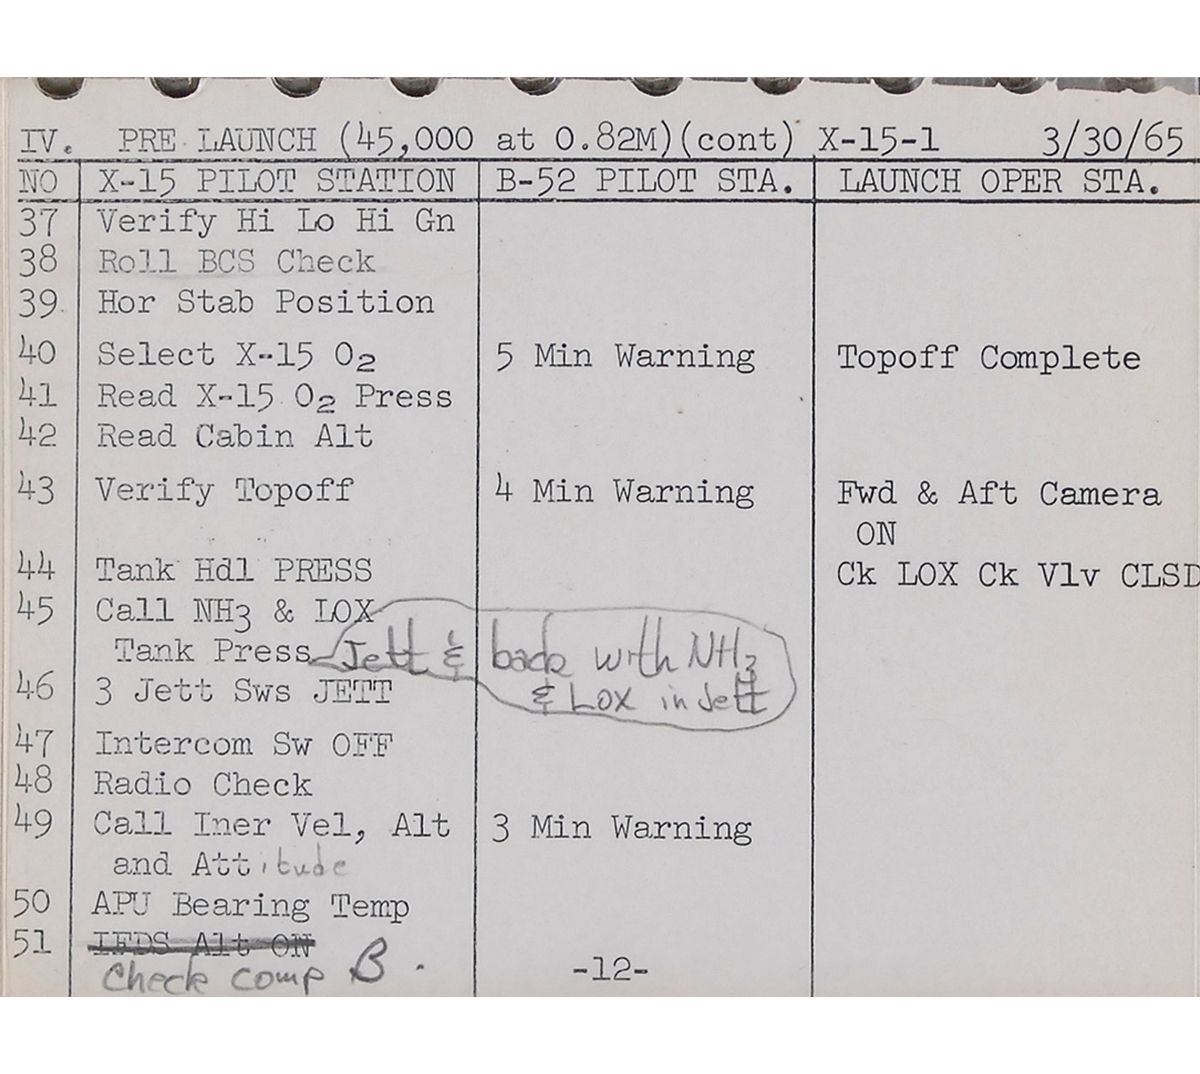 IV. PRE LAUNCH (45,000 at 0.82M)(cont) X-15-1 3/30/65
NO X-15 PILOT STATION B-52 PILOT STA. LAUNCH OPER STA.
37 Verify Hi Lo Hi Gn
38 Roll BCS Check
39 Hor Stab Position
40 Select X-15 O2 5 Min Warning Topoff Complete
41 Read X-15 O2 Press
42 Read Cabin Alt
43 Verify Topoff 4 Min Warning Fwd & Aft Camera
ON
44 Tank Hdl PRESS Ck LOX Ck Vlv CLSD
45 Call NH3 & LOX
Tank Press Jett & back with NH3
& LOX in Jett
46 3 Jett Sws JETT
47 Intercom Sw OFF
48 Radio Check
49 Call Iner Vel, Alt 3 Min Warning
and Attitude
50 APU Bearing Temp
51 IFDS Alt ON
Check comp B.
-12-